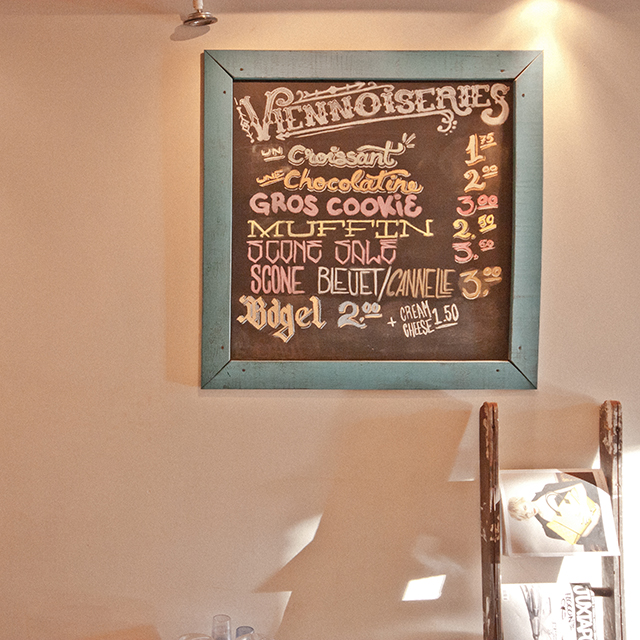 VIENNOISERIES
UN Croissant 1.75
UNE Chocolatine 2.00
GROS COOKIE 3.00
MUFFIN 2.50
SCONE SALÉ 3.50
SCONE BLEUET/CANNELLE 3.00
Bagel 2.00 + CREAM CHEESE 1.50
JUXTAP